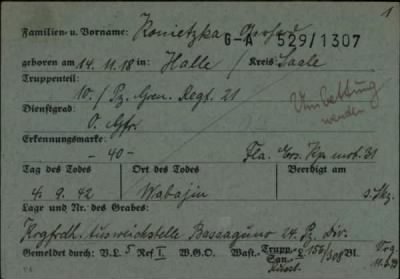 1
Familien- u. Vorname: Konietzka Gerhard
G-A 529/1307
geboren am 14.11.18 in Halle / Kreis: Saale
Truppenteil:
10./ Pz. Gren. Regt. 21
Umbettung
Dienstgrad:
O. Gfr.
Erkennungsmarke:
- 40 - Fla. Ers. Kp. mot. 31
Tag des Todes Ort des Todes Beerdigt am
4. 9. 42 Wabajin s. Skz.
Lage und Nr. des Grabes:
Krgfrdh. Ausweichstelle Bassaguno 24. Pz. Div.
Gemeldet durch: V.L. 5 Ref I. W.G.O. Wast.-Trupp.- 156/308 Bl.
San.-